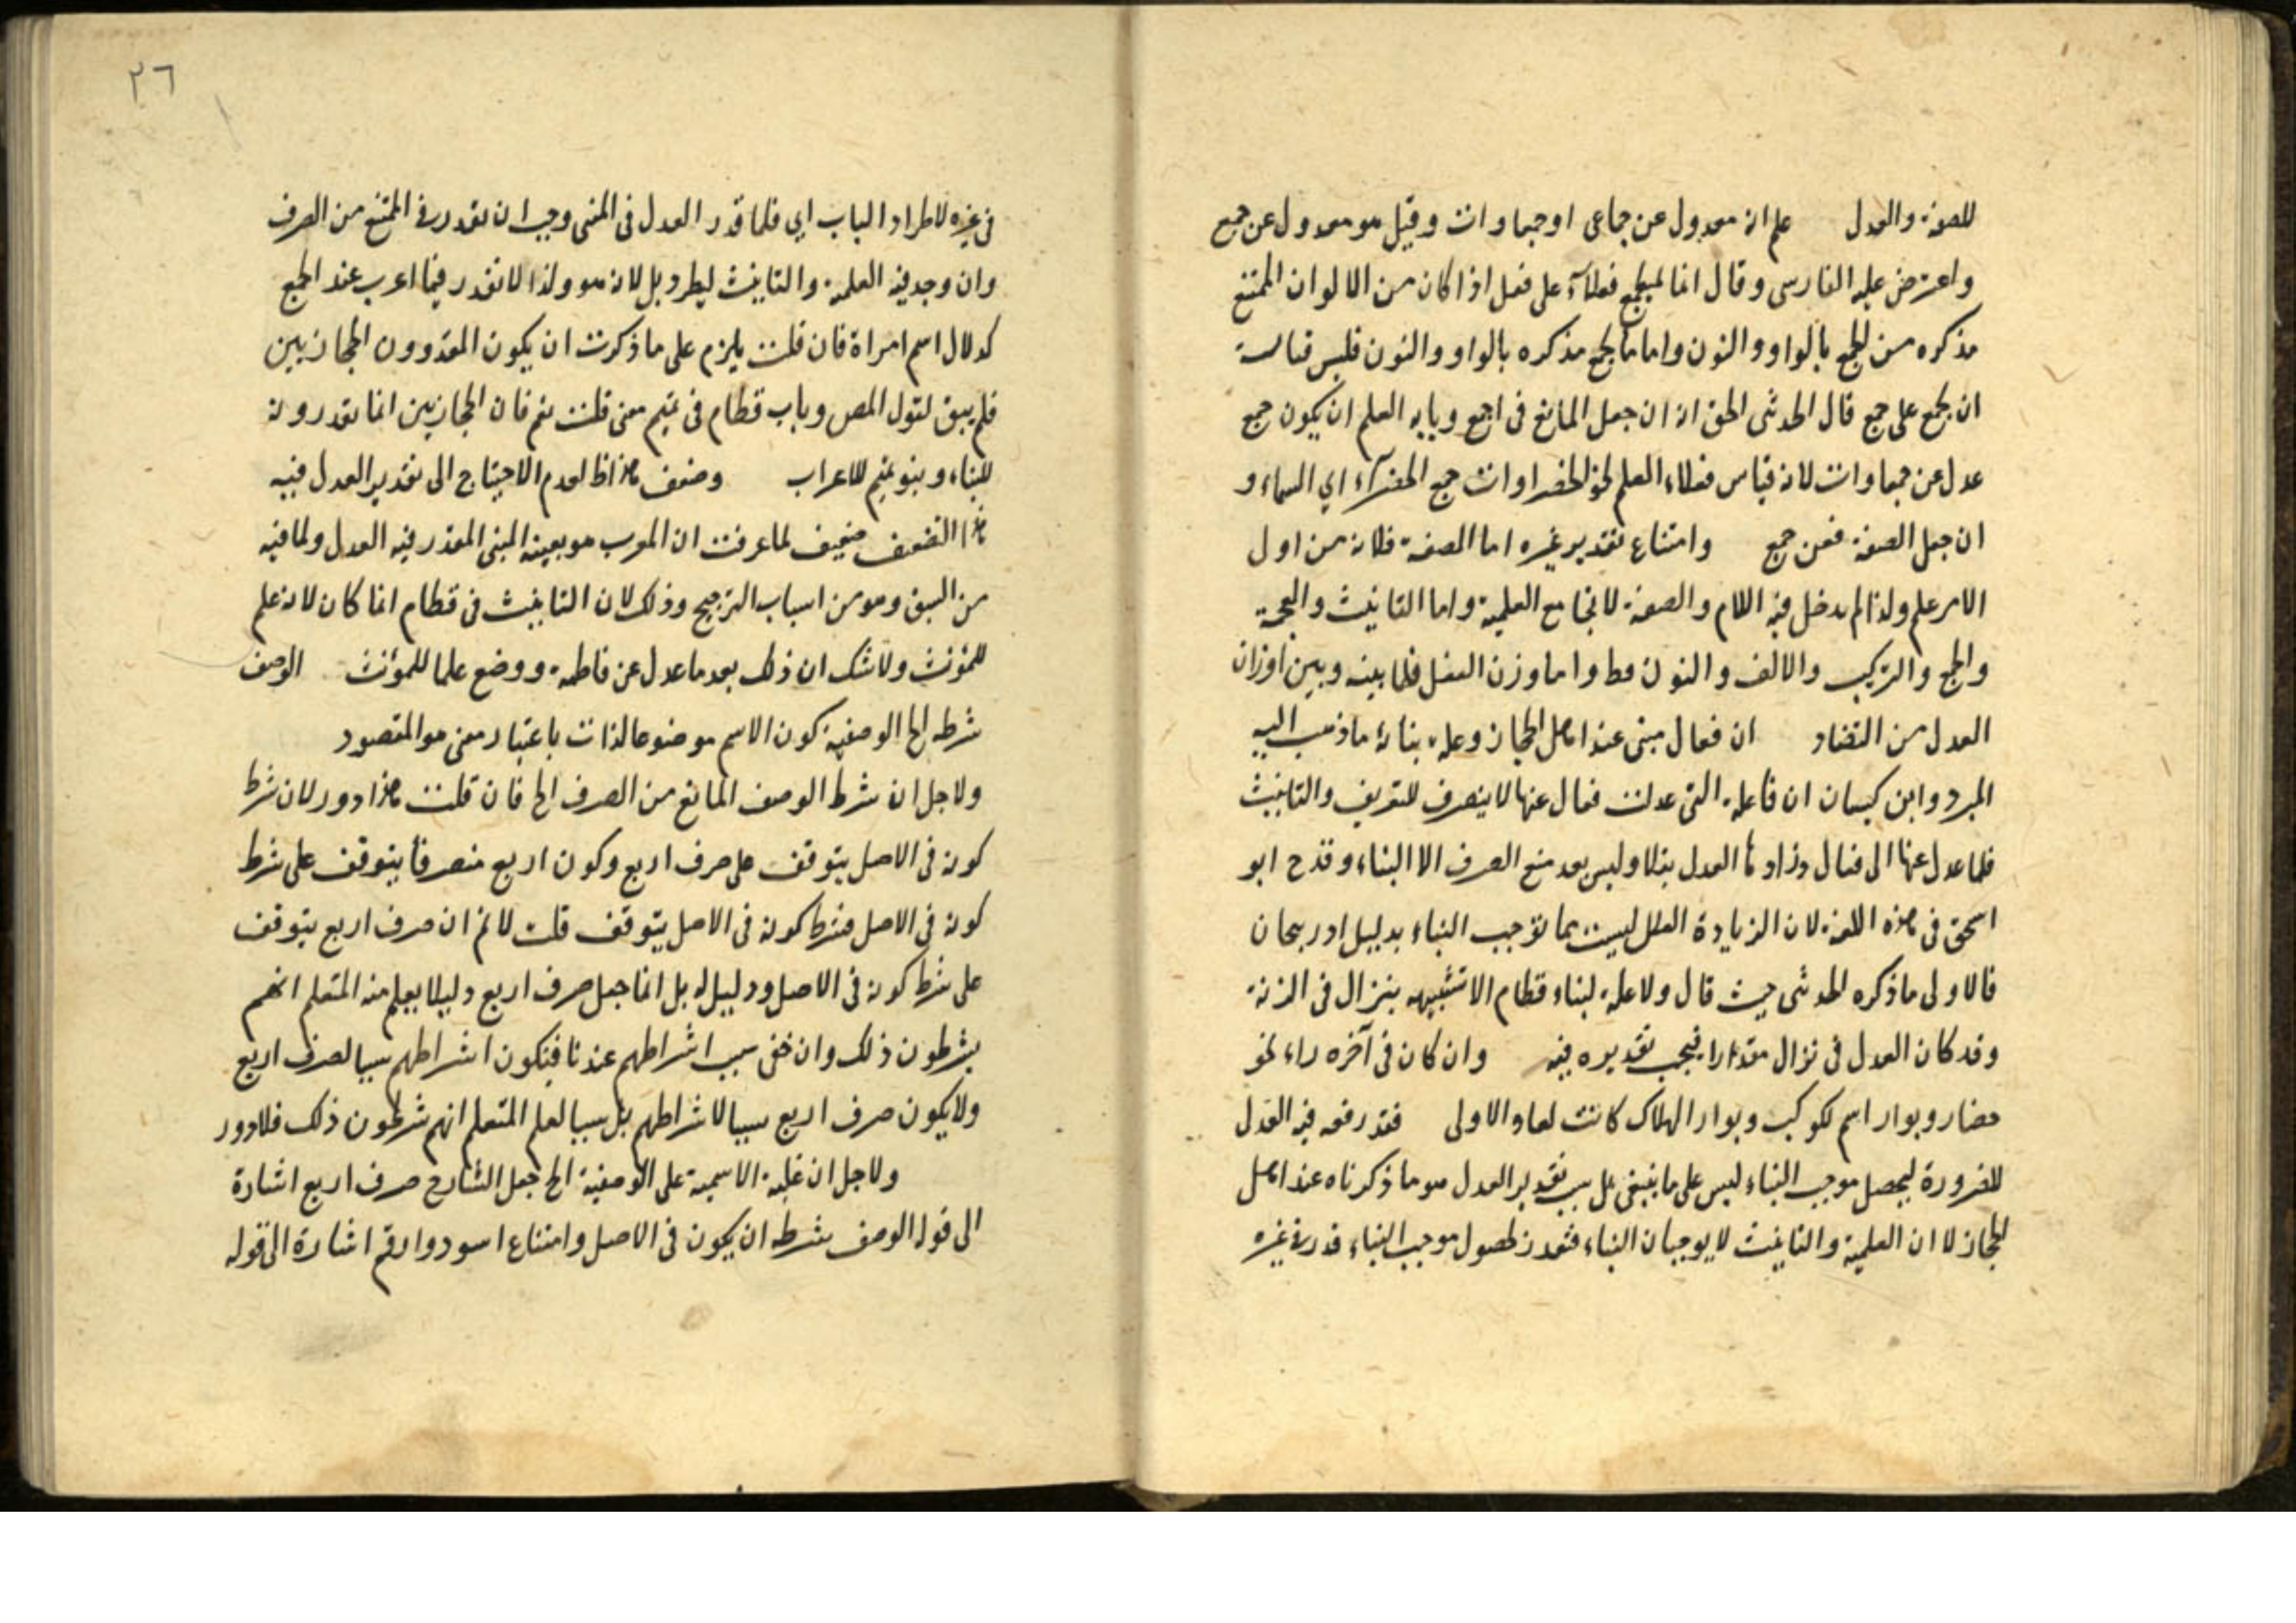 للصفة والعدل علم انه معدول عن جماعى او جمعاوات وقيل هو معدول عن جمع
واعترض عليه الفارسى وقال انما لم يجمع فعلاء على فعل اذا كان من الالوان الممتنع
مذكره من الجمع بالواو والنون واما ما يجمع مذكره بالواو والنون فليس قياسه
ان يجمع على جمع قال الحدثى الحق انه ان جعل المانع فى اجمع وبابه العلم ان يكون جمع
عدل عن جمعاوات لانه قياس فعلاء العلم نحو الخضراوات جمع الخضراء اي السماء و
ان جعل الصفة فعن جمع وامتناع تقدير غيره اما الصفة فلانه من اول
الامر علم ولذا لم يدخل فيه اللام والصفة لا تجامع العلمية واما التانيث والعجمة
والجمع والتركيب والالف والنون فظ واما وزن الفعل فلما بينه وبين اوزان
العدل من التضاد ان فعال مبنى عند اهل الحجاز وعلة بنائه ما ذهب اليه
المبرد وابن كيسان ان فاعلة التى عدلت فعال عنها لا ينصرف للتعريف والتانيث
فلما عدل عنها الى فعال وزادها العدل ثقلا وليس بعد منع الصرف الا البناء وقدح ابو
اسحق فى هذه اللغة لان الزيادة العلل ليست مما توجب البناء بدليل اذربيجان
فالاولى ما ذكره الحدثى حيث قال ولا علة لبناء قطام الا تشبيهه بنزال فى الزنة
وقد كان العدل فى نزال مقدارا فيجب تقديره فيه وان كان فى آخره راء نحو
حضار وبوار اسم لكوكب وبوار الهلاك كانت لعاد الاولى فقد رفعه فيه العدل
للضرورة ليحصل موجب البناء ليس على ما ينبغى بل سبب تقدير العدل هو ما ذكرناه عند اهل
الحجاز لا ان العلمية والتانيث لا يوجبان البناء فقدر لحصول موجب البناء قدر فى غيره
٢٦
فى غيره لاطراد الباب اي فلما قدر العدل فى المبنى وجب ان يقدر فى الممتنع من الصرف
وان وجد فيه العلمية والتانيث ليطرد بل لانه هو ولذا لا يقدر فيما اعرب عند الجمع
كدلال اسم امراة فان قلت يلزم على ما ذكرت ان يكون المقدرون الحجازيين
فلم يبق لقول المص وباب قطام فى تميم معنى قلت نعم فان الحجازيين انما يقدرونه
للبناء وبنو تميم للاعراب وضعف هذا ظ لعدم الاحتياج الى تقدير العدل فيه
هذا التضعيف ضعيف لما عرفت ان المعرب هو بعينه المبنى المقدر فيه العدل ولما فيه
من السبق وهو من اسباب الترجيح وذلك لان التانيث فى قطام انما كان لانه علم
للمؤنث ولا شك ان ذلك بعد ما عدل عن فاطمة ووضع علما للمؤنث الوصف
شرطه الخ الوصفية كون الاسم موضوعا لذات باعتبار معنى هو المقصود
ولاجل ان شرط الوصف المانع من الصرف الخ فان قلت هذا دور لان شرط
كونه فى الاصل يتوقف على صرف اربع وكون اربع منصرفا يتوقف على شرط
كونه فى الاصل فشرط كونه فى الاصل يتوقف قلت لا نم ان صرف اربع يتوقف
على شرط كونه فى الاصل ودليل له بل انما جعل صرف اربع دليلا يعلم منه المتعلم انهم
يشرطون ذلك وان خفى سبب اشراطهم عندنا فيكون اشراطهم سببا لصرف اربع
ولا يكون صرف اربع سببا لاشراطهم بل سببا لعلم المتعلم انهم شرطون ذلك فلا دور
ولاجل ان غلبة الاسمية على الوصفية الخ جعل الشارح صرف اربع اشارة
الى قوله الوصف شرطه ان يكون فى الاصل وامتناع اسود وارقم اشارة الى قوله